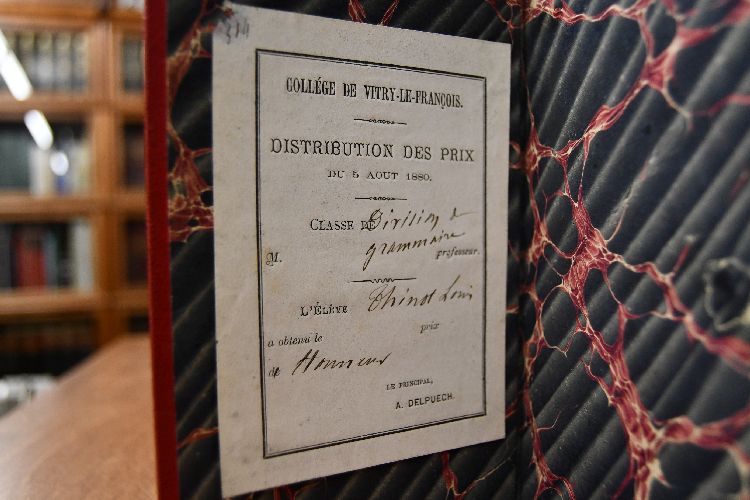 COLLÉGE DE VITRY-LE-FRANÇOIS.
DISTRIBUTION DES PRIX
DU 5 AOUT 1880.
CLASSE DE Division de
grammaire
M. professeur.
L'ÉLÈVE Thinot Louis
a obtenu le prix
de Honneur
LE PRINCIPAL,
A. DELPUECH.